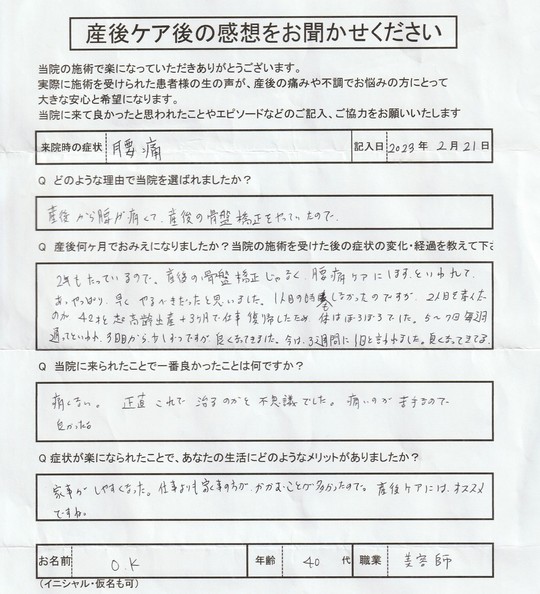 産後ケア後の感想をお聞かせください
当院の施術で楽になっていただきありがとうございます。
実際に施術を受けられた患者様の生の声が、産後の痛みや不調でお悩みの方にとって
大きな安心と希望になります。
当院に来て良かったと思われたことやエピソードなどのご記入、ご協力をお願いいたします
来院時の症状 腰痛 記入日 2023 年 2 月 21 日
Q どのような理由で当院を選ばれましたか？
産後から腰が痛くて、産後の骨盤矯正をやっていたので。
Q 産後何ヶ月でおみえになりましたか？当院の施術を受けた後の症状の変化・経過を教えて下さ
2年もたっているので、産後の骨盤矯正じゃなく、腰痛ケアにしますといわれて、
あ、やっぱり、早く やるべきだったと思いました。1人目の時はしなかったのですが、2人目を
42才と 高齢出産 + 3ヶ月で仕事 復帰したため、体はぼろぼろでした。5〜7回 毎週
通ってといわれ、3回目から、少しずつですが 良くなってきました。今は、3週間に1回と言われました。良くなってきてる
Q 当院に来られたことで一番良かったことは何ですか？
痛くない。 正直 これで 治るのかと 不思議でした。 痛いのが 苦手なので
良かった
Q 症状が楽になられたことで、あなたの生活にどのようなメリットがありましたか？
家事が しやすくなった。仕事よりも家事の方が、かがむことが多かったので。 産後ケアには、オススメ
ですね。
お名前 O.K 年齢 40 代 職業 美容師
(イニシャル・仮名も可)